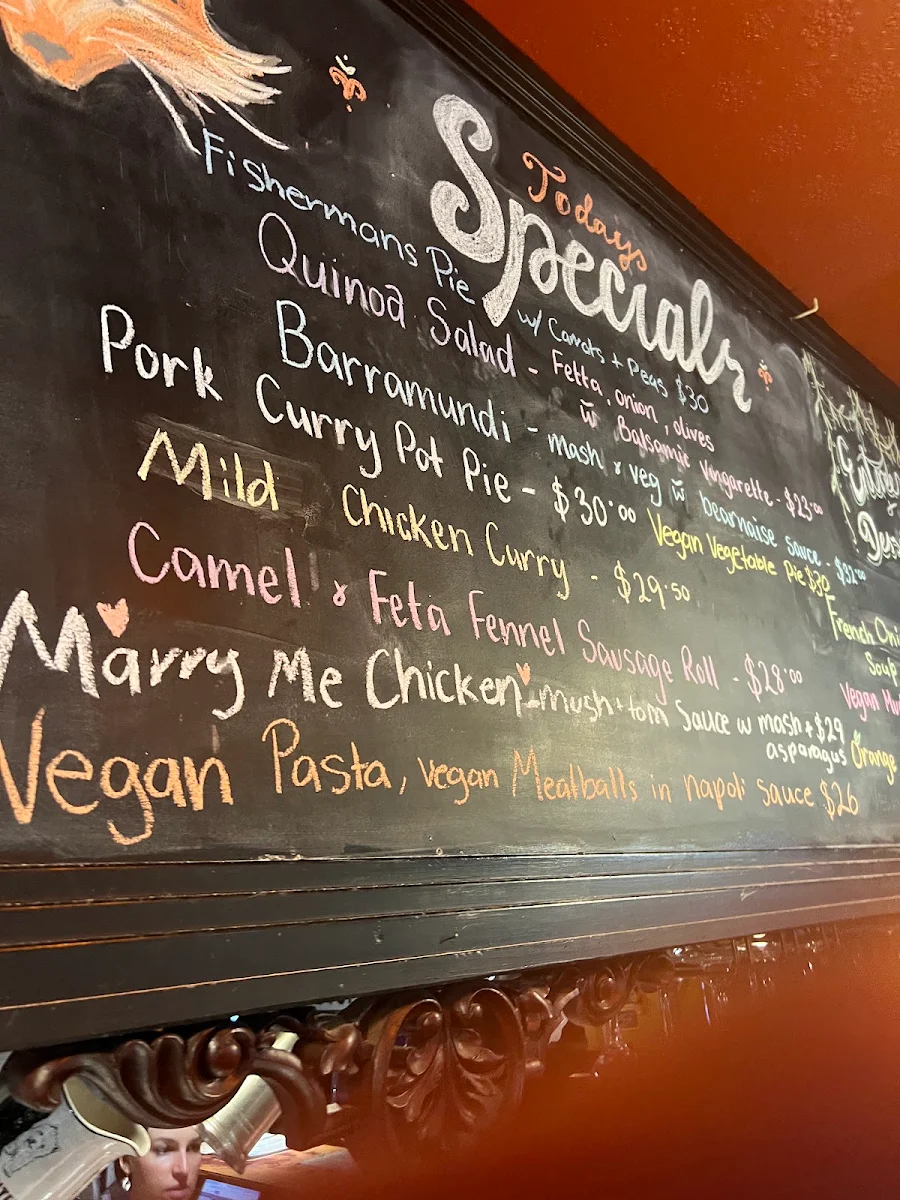 Todays
Specials
Fishermans Pie w/ Carrots + Peas $30
Quinoa Salad - Fetta, onion, olives
w̄ Balsamic Vingarette - $23.00
Barramundi - mash & veg w̄ bearnaise sauce - $32.00
Pork Curry Pot Pie - $30.00
Vegan Vegetable Pie $30
Mild Chicken Curry - $29.50
Camel & Feta Fennel Sausage Roll - $28.00
Marry Me Chicken - mush + tom Sauce w mash + $29
asparagus
Vegan Pasta, vegan Meatballs in napoli sauce $26
French Oni
Soup
Vegan Mu
Orange